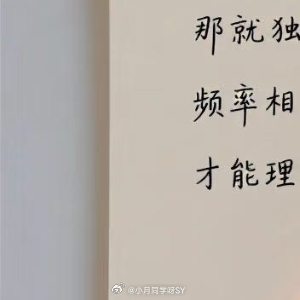 那就独
频率相
才能理
@小月同学呀SY